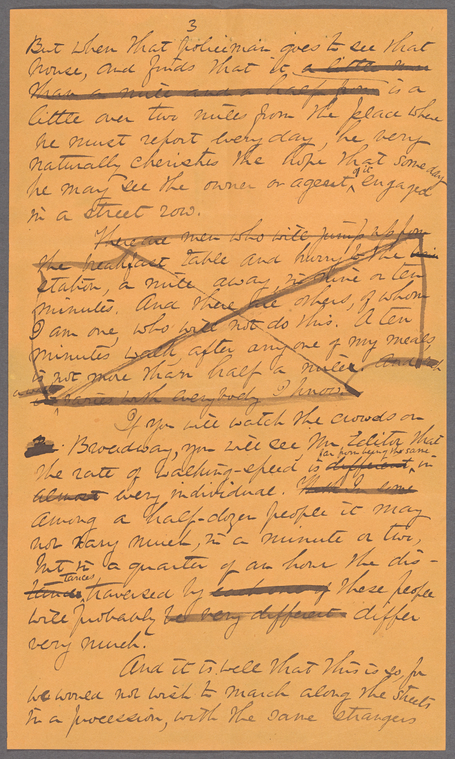 3
But when that policeman goes to see that
house, and finds that it a little more
than a mile and a half from is a
little over two miles from the place where
he must report every day, he very
naturally cherishes the hope that some day
he may see the owner or agent, of it engaged
in a street row.
There are men who will jump up from
the breakfast table and hurry to the
station, a mile away, in nine or ten
minutes. And there are others, of whom
I am one, who will not do this. A ten
minutes walk after any one of my meals,
is not more than half a mile, and
varies with everybody I know.
If you will watch the crowds on
Broadway, you will see, Mr. Editor that
far from being the same
the rate of walking-speed is different, in
almost every individual.
Among a half-dozen people it may
not vary much, in a minute or two,
but in a quarter of an hour the dis-
tances traversed by each one of these people
will probably be very different differ
very much.
And it is well that this is so, for
we would not wish to march along the streets
in a procession, with the same strangers